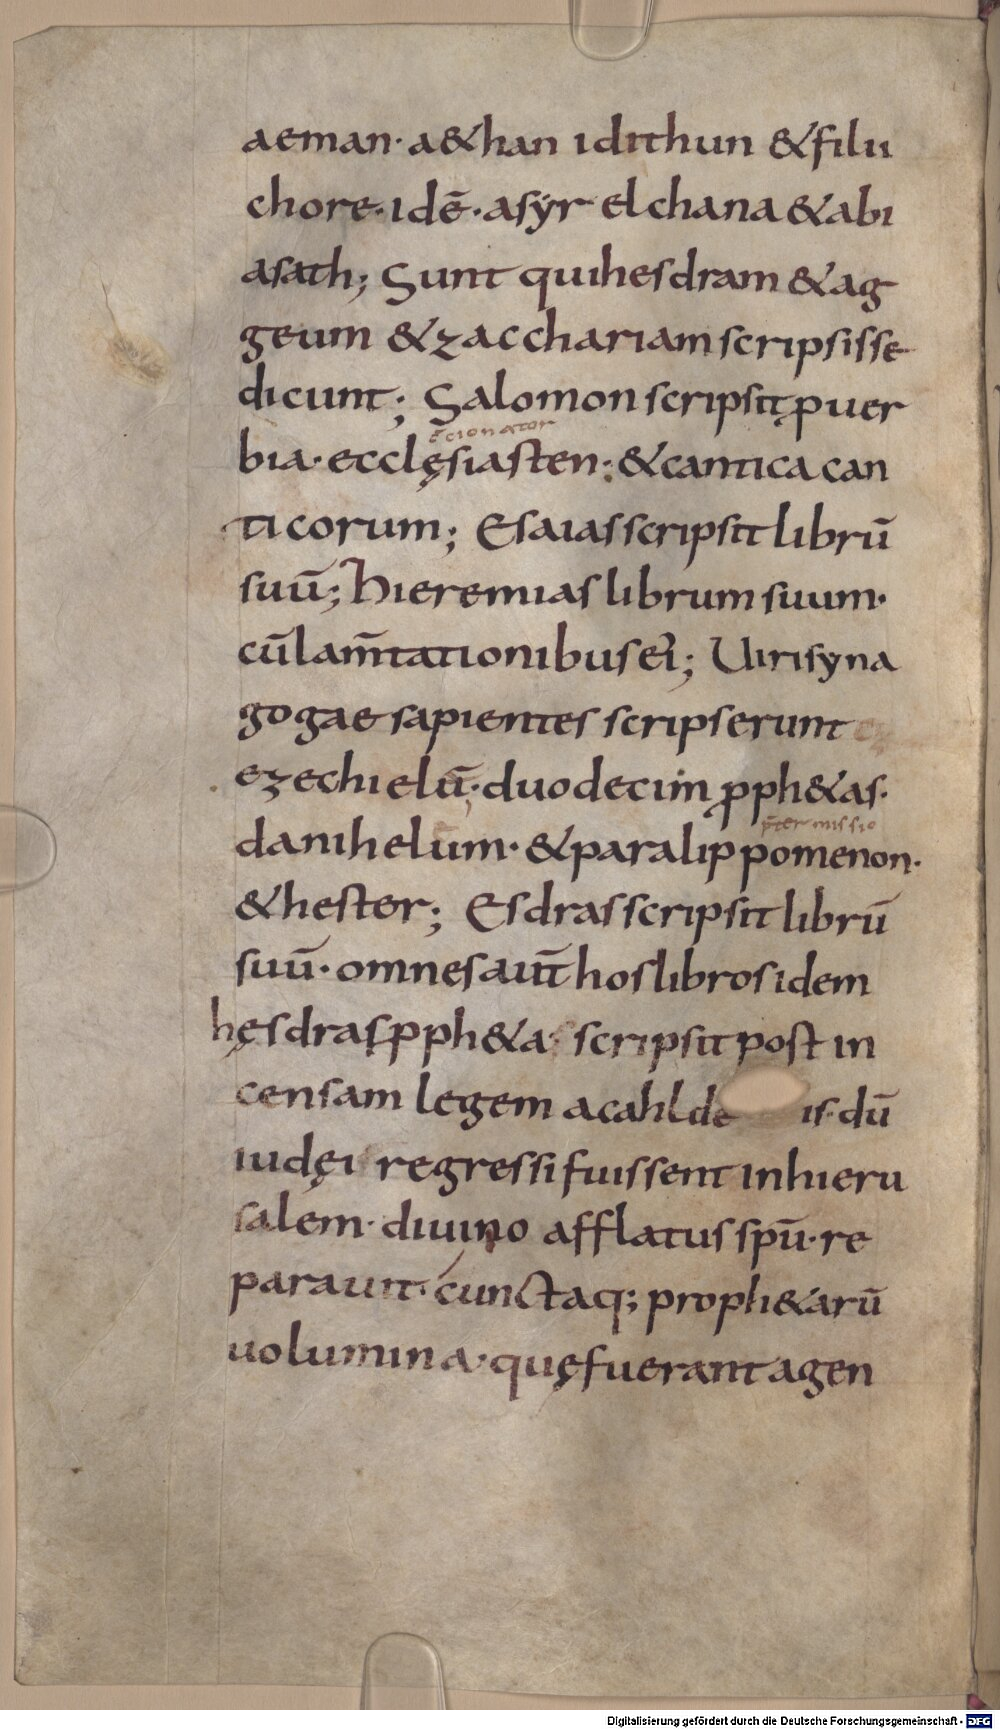 aeman· a&han idithun &filii
chore· idē· asẏr elchana &abi
asath; Sunt quihesdram &ag
geum &zacchariam scripsisse
dicunt; Salomon scripsit ꝓuer
ēcionator
bia· ecclęsiasten· &cantica can
ticorum; Esaias scripsit librū
suū; Hieremias librum suum·
cū lam̄tationibus ei; Uiri syna
gogae sapientes scripserunt
ezechielū· duodecim ꝓph&as·
p̄termissio
danihelum· &paralippomenon·
&hester; Esdras scripsit librū
suū· omnes aut̄ hos libros idem
hęsdras ꝓph&a scripsit post in
censam legem acahlde is· dū
iudęi regressi fuissent inhieru
salem· diuino afflatus spū· re
parauit· cunctaq; proph&arū
uolumina· quę fuerant agen
Digitalisierung gefördert durch die Deutsche Forschungsgemeinschaft - DFG